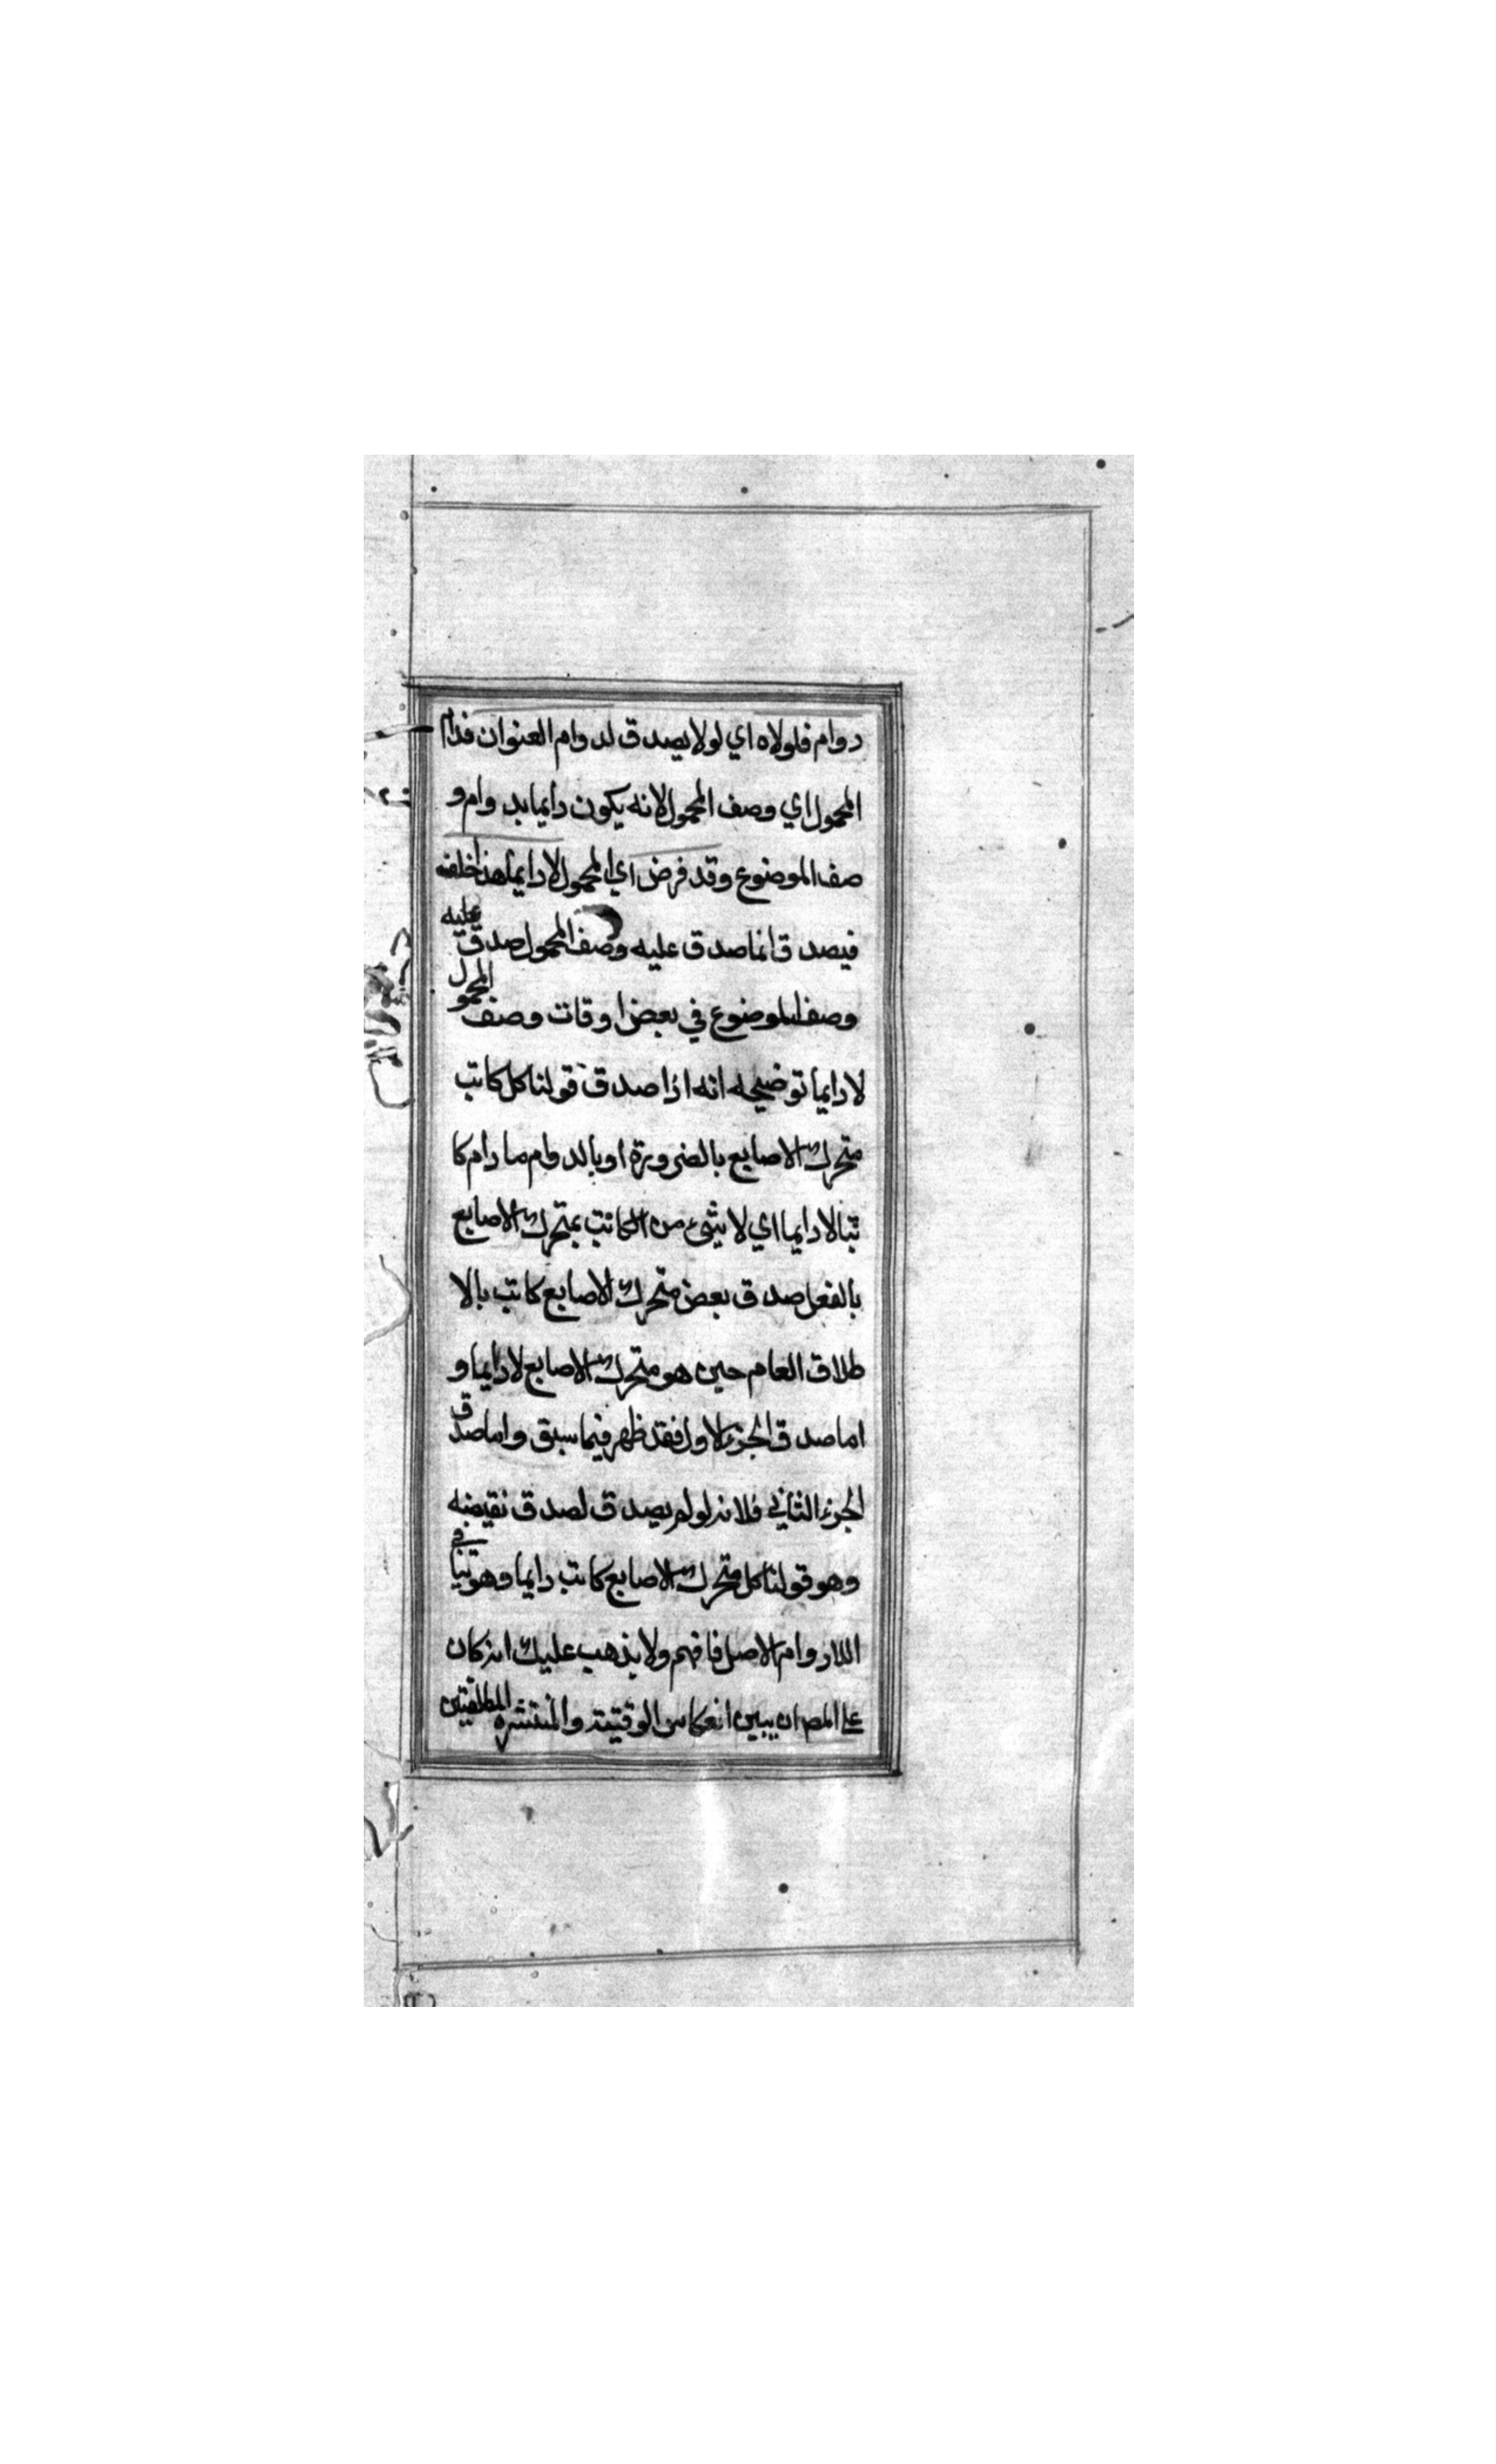 دوام فلولاه اي لولا يصدق لدوام العنوان فدام
المحمول اي وصف المحمول لانه يكون دايما بدوام و
صف الموضوع وقد فرض اي المحمول لا دايما هذا خلفه
فيصدق انما صدق عليه وصف المحمول صدق عليه
وصف الموضوع في بعض اوقات وصف المحمول
لا دايما توضيحه انه اذا صدق قولنا كل كاتب
متحرك الاصابع بالضرورة او بالدوام ما دام كا
تبا لا دايما اي لا شيء من الكاتب بمتحرك الاصابع
بالفعل صدق بعض متحرك الاصابع كاتب بالا
طلاق العام حين هو متحرك الاصابع لا دايما و
اما صدق الجزء الاول فقد ظهر فيما سبق واما صدق
الجزء الثاني فلانه لو لم يصدق لصدق نقيضه
وهو قولنا كل متحرك الاصابع كاتب دايما وهو ينافي
اللادوام الاصل فافهم ولا يذهب عليك انه كان
على المص ان يبين انعكاس الوقتية والمنتشره المطلقتين